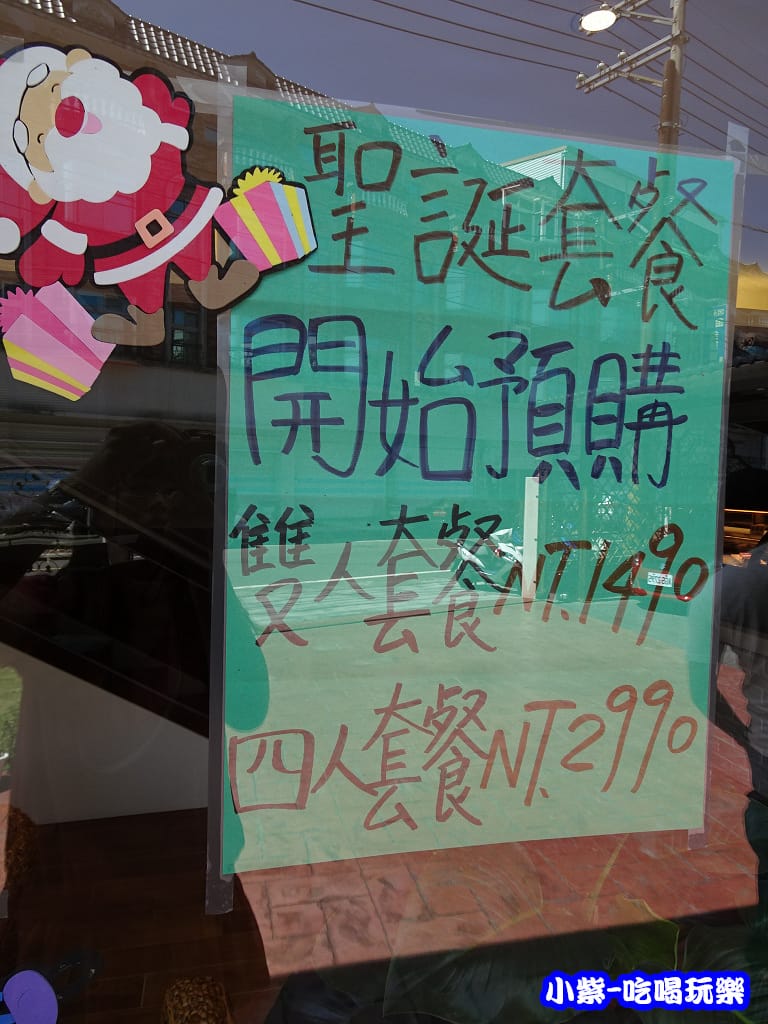 聖誕套餐
開始預購
雙人套餐NT.1490
四人套餐NT.2990
小紫-吃喝玩樂